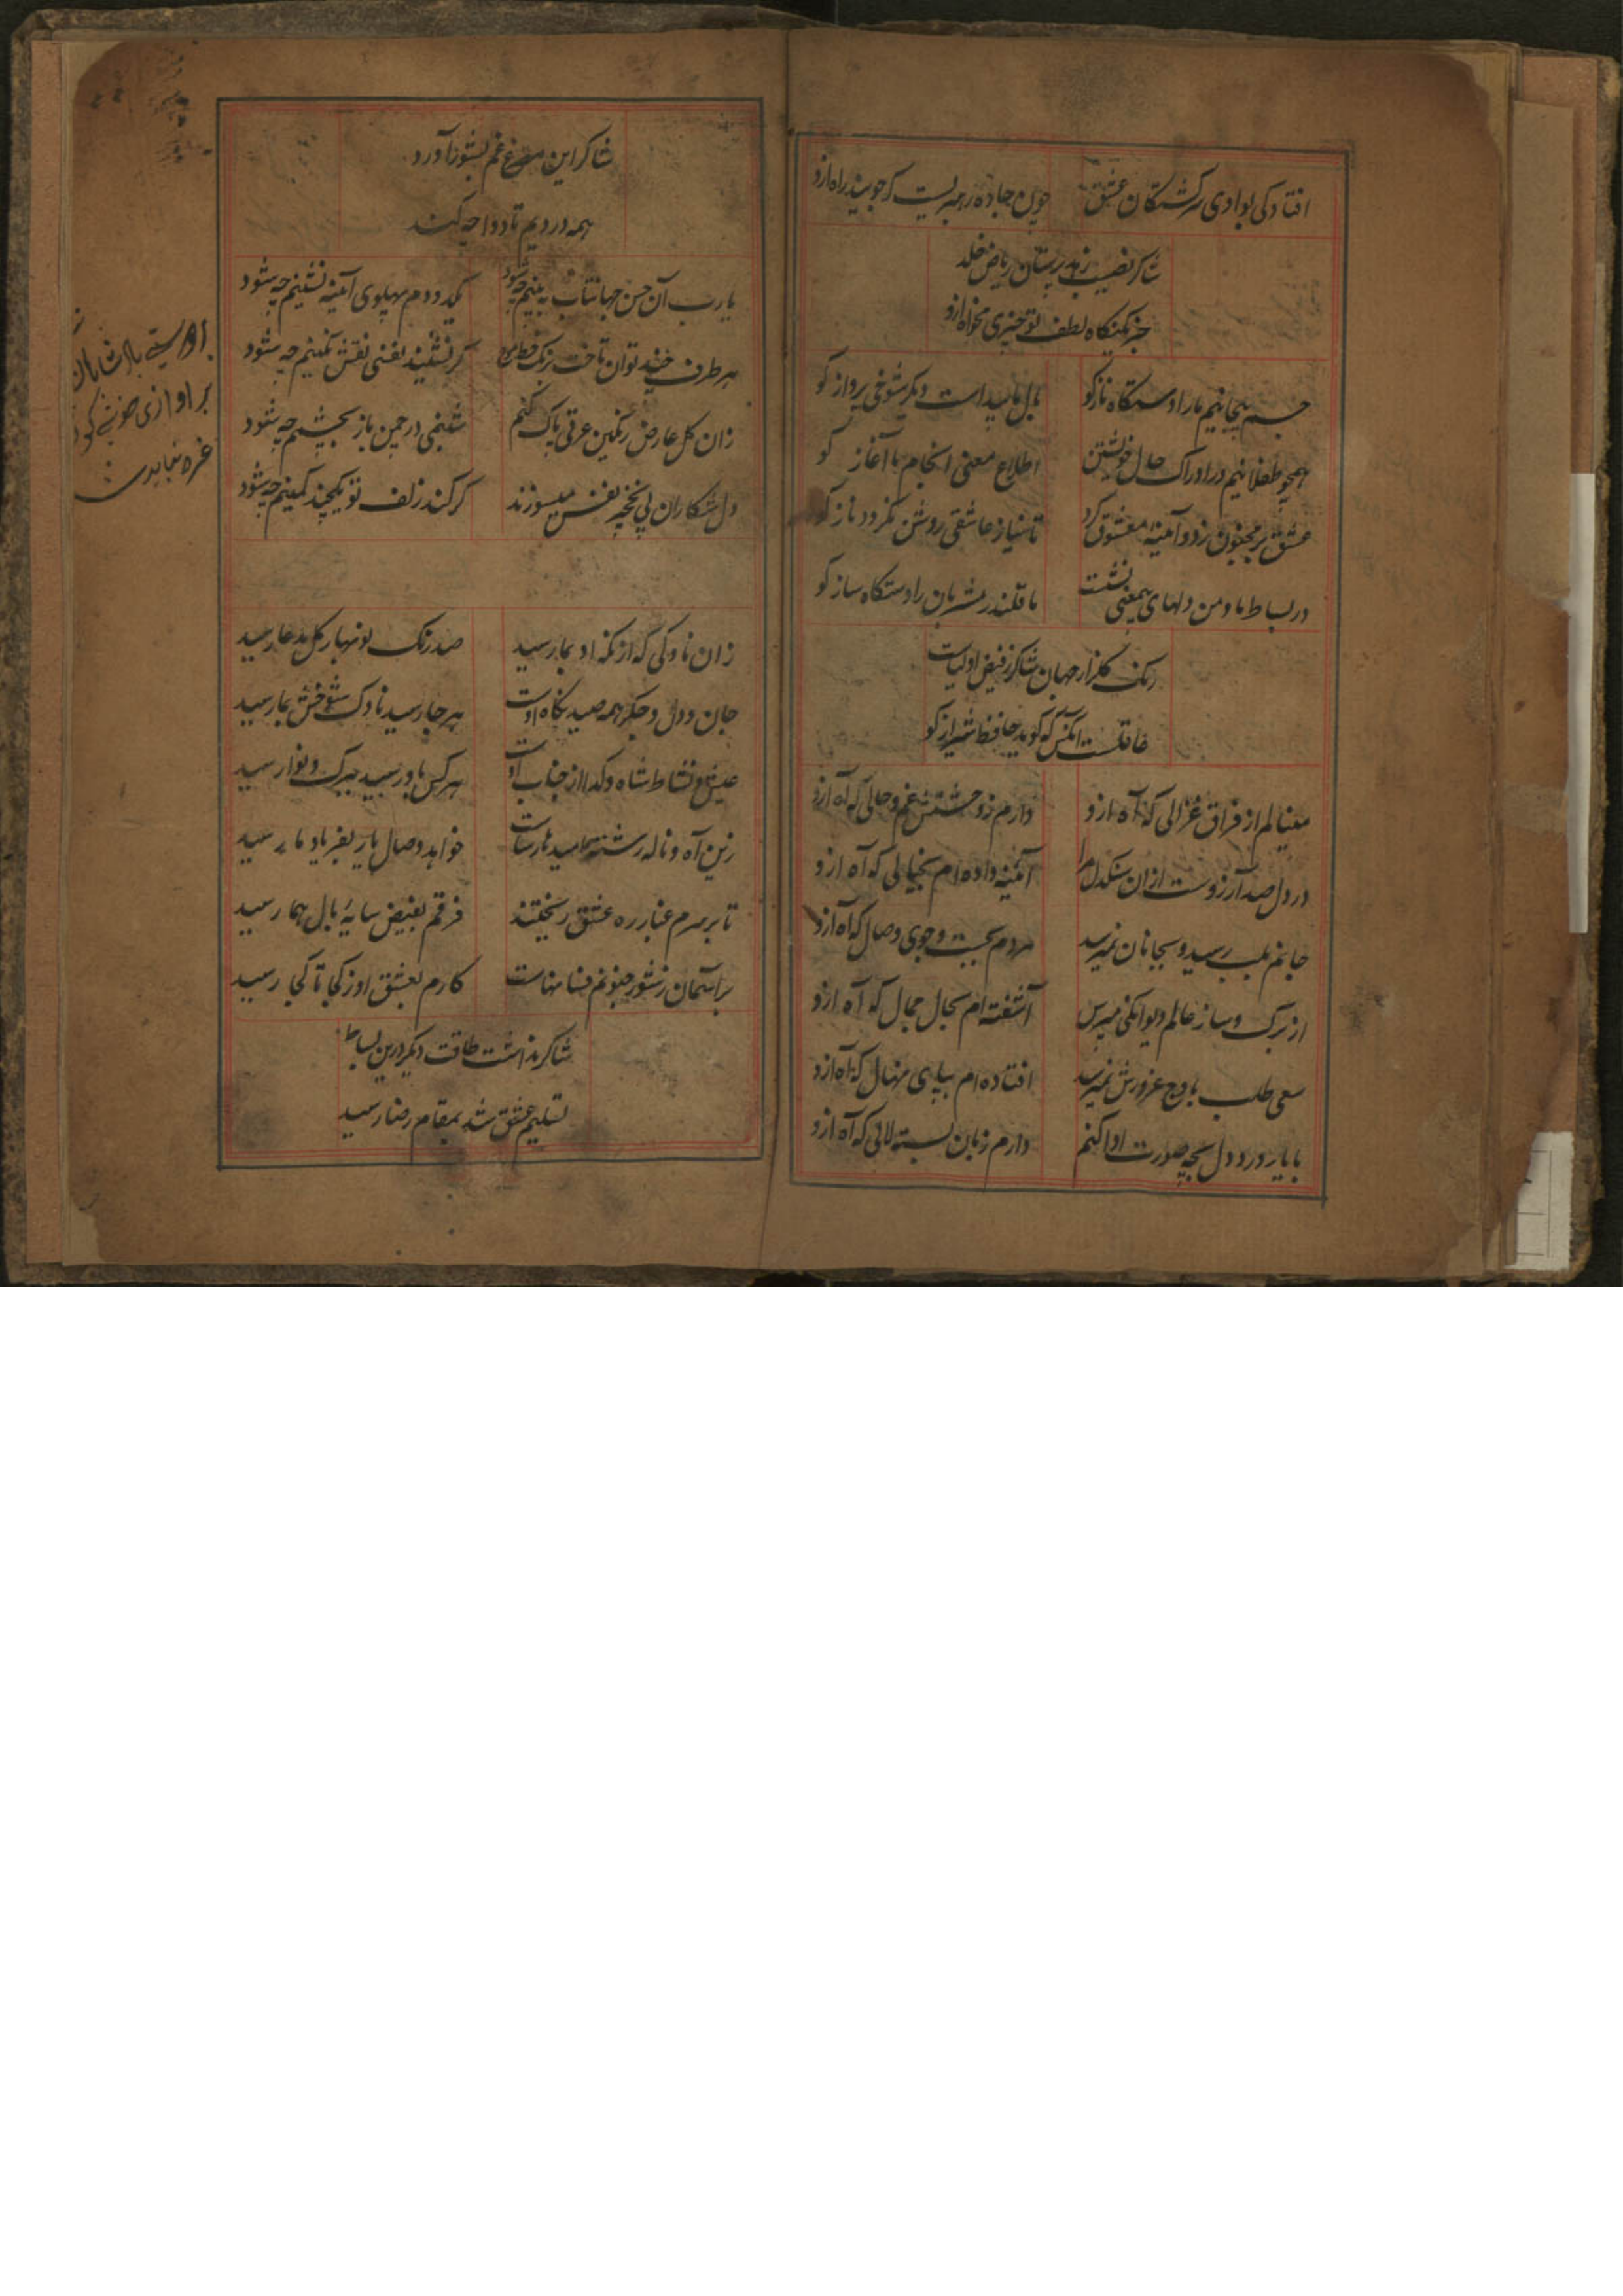 افتادکی بوادی سرکشتکان عشق چون جاده رهبریست که جویند راه ازو
شاکر نصیب زهد پرستان ریاض خلد
جز نکاه لطف تو چیزی مخواه ازو
جسم بیجانیم ما را دستکاه ناز کو بال ما پیداست دیکر شوخی پرواز کو
همچو طفلانیم در ادراک حال خویشتن اطلاع معنی انجام با آغاز کو
عشق بر مجنون زد و آئینهٔ معشوق کرد تا نیاز عاشقی روشن نکردد ناز کو
در بساط ما و من دلهای بیمعنی نشست ما قلندر مشربان را دستکاه ساز کو
رنک کلزار جهان شاکر ز فیض اولیاست
غافلست آنکس که کوید حافظ شیراز کو
مینالم از فراق غزالی که آه ازو دارم ز وحشتش غم و حالی که آه ازو
در دل صد آرزوست از ان سنکدل مرا آئینه داده ام بخیالی که آه ازو
جانم بلب رسید و بجانان نمیرسد مردم بجست و جوی وصالی که آه ازو
از برک و ساز عالم دیوانکی مپرس آشفته ام بحال محال که آه ازو
سعی طلب باوج غرورش نمیرسد افتاده ام بپای نهال که آه ازو
با یار درد دل بچه صورت ادا کنم دارم زبان بسته لالی که آه ازو
شاکر این مصرع غم بشور آورد
همه دردیم تا دوا چه کند
یارب آن حسن جهانتاب به بینم چه شود یکدو دم پهلوی آئینه نشینم چه شود
زان کل عارض رنکین عرقی پاک کنم شبنمی در چمن باز بچینم چه شود
دل شکاران پی نخچیر نفس میسوزند کر کند زلف تو یکچند کمینم چه شود
زان ناوکی که از نکه او بما رسید صد رنک نوبهار کل مدعا رسید
جان و دل و جکر همه صید نکاه اوست هر جا رسید ناوک شوخش بجا رسید
عیش و نشاط شاه و کدا از جناب اوست هر کس باو رسید ببرک و نوا رسید
زین آه و ناله رشته امید نارساست خواهد وصال یار بفریاد ما رسید
تا بر سرم غبار ره عشق ریختند فرقم بفیض سایهٔ بال هما رسید
بر آسمان ز شور جنونم فسانهاست کارم بعشق او ز کجا تا کجا رسید
شاکر نداشت طاقت دیکر درین بساط
تسلیم عشق شد بمقام رضا رسید